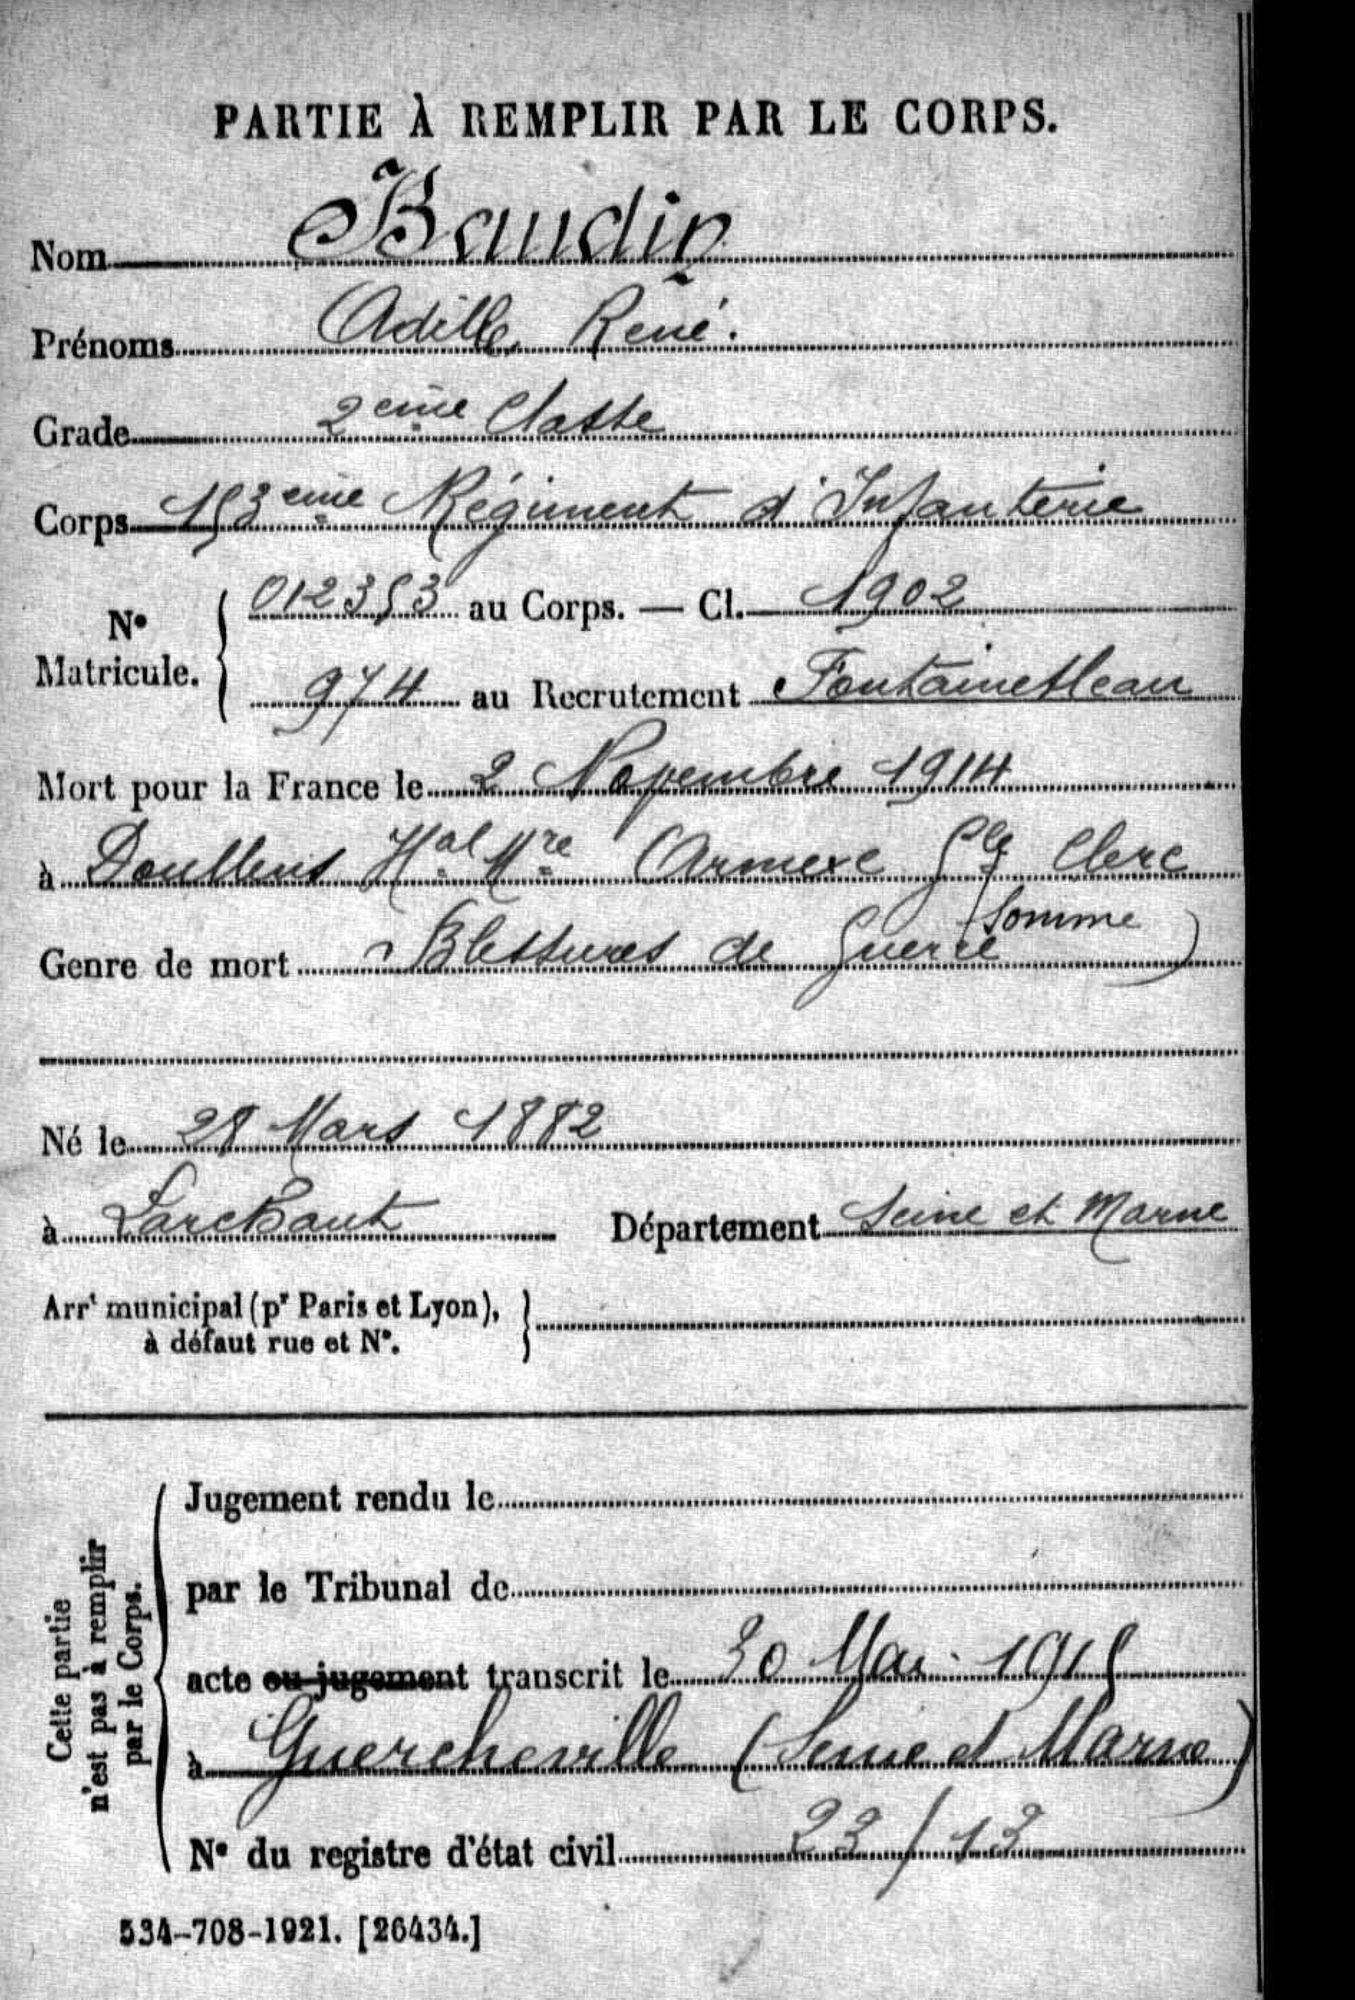 PARTIE À REMPLIR PAR LE CORPS.
Nom Baudin
Prénoms Adille, René.
Grade 2eme Classe
Corps 153eme Régiment d'Infanterie
N° Matricule. 012353 au Corps. — Cl. 1902
974 au Recrutement Fontainebleau
Mort pour la France le 2 Novembre 1914
à Doullens Hal Mre Annexe Clerc
Somme)
Genre de mort Blessures de Guerre
Né le 28 Mars 1882
à Larchant Département Seine et Marne
Arrt municipal (pr Paris et Lyon),
à défaut rue et N°.
Cette partie
n'est pas à remplir
par le Corps.
Jugement rendu le
par le Tribunal de
acte ou jugement transcrit le 30 Mai 1915
à Guercheville (Seine et Marne)
N° du registre d'état civil 23/13
534-708-1921. [26434.]